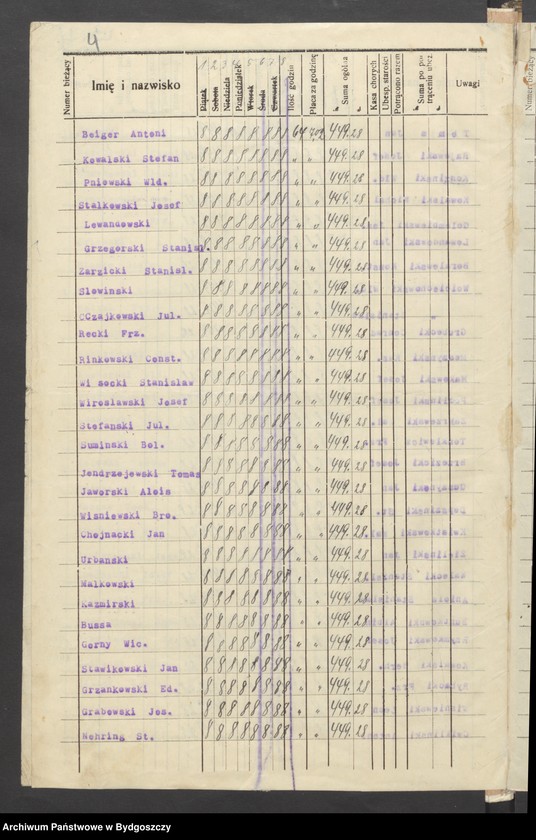 4
1 2 3 4 5 6 7 8
Numer bieżący Imię i nazwisko Piątek Sobota Niedziela Poniedziałek Wtorek Środa Czwartek Ilość godzin Płaca za godzinę Suma ogólna Kasa chorych Ubesp. starości Potrącono razem Suma po potrąceniu ubez. Uwagi
Beiger Antoni 8 8 8 8 8 8 8 8 64 702 449.28
Kowalski Stefan 8 8 8 8 8 8 8 8 " " 449.28
Pniewski Wld. 8 8 8 8 8 8 8 8 " " 449.28
Stalkowski Josef 8 8 8 8 8 8 8 8 " " 449.28
Lewandowski 8 8 8 8 8 8 8 8 " " 449.28
Grzegorski Stanisl. 8 8 8 8 8 8 8 8 " " 449.28
Zarzicki Stanisl. 8 8 8 8 8 8 8 8 " " 449.28
Slowinski 8 8 8 8 8 8 8 8 " " 449.28
CCzajkowski Jul. 8 8 8 8 8 8 8 8 " " 449.28
Recki Frz. 8 8 8 8 8 8 8 8 " " 449.28
Rinkowski Const. 8 8 8 8 8 8 8 8 " " 449.28
Wi socki Stanislaw 8 8 8 8 8 8 8 8 " " 449.28
Wiroslawski Josef 8 8 8 8 8 8 8 8 " " 449.28
Stefanski Jul. 8 8 8 8 8 8 8 8 " " 449.28
Suminski Bol. 8 8 8 8 8 8 8 8 " " 449.28
Jendrzejewski Tomas 8 8 8 8 8 8 8 8 " " 449.28
Jaworski Alois 8 8 8 8 8 8 8 8 " " 449.28
Wisniewski Bro. 8 8 8 8 8 8 8 8 " " 449.28
Chojnacki Jan 8 8 8 8 8 8 8 8 " " 449.28
Urbanski 8 8 8 8 8 8 8 8 " " 449.28
Malkowski 8 8 8 8 8 8 8 8 " " 449.28
Kazmirski 8 8 8 8 8 8 8 8 " " 449.28
Bussa 8 8 8 8 8 8 8 8 " " 449.28
Gorny Wic. 8 8 8 8 8 8 8 8 " " 449.28
Stawikowski Jan 8 8 8 8 8 8 8 8 " " 449.28
Grzankowski Ed. 8 8 8 8 8 8 8 8 " " 449.28
Grabowski Jos. 8 8 8 8 8 8 8 8 " " 449.28
Nehring St. 8 8 8 8 8 8 8 8 " " 449.28
Numer bieżący
Archiwum Państwowe w Bydgoszczy